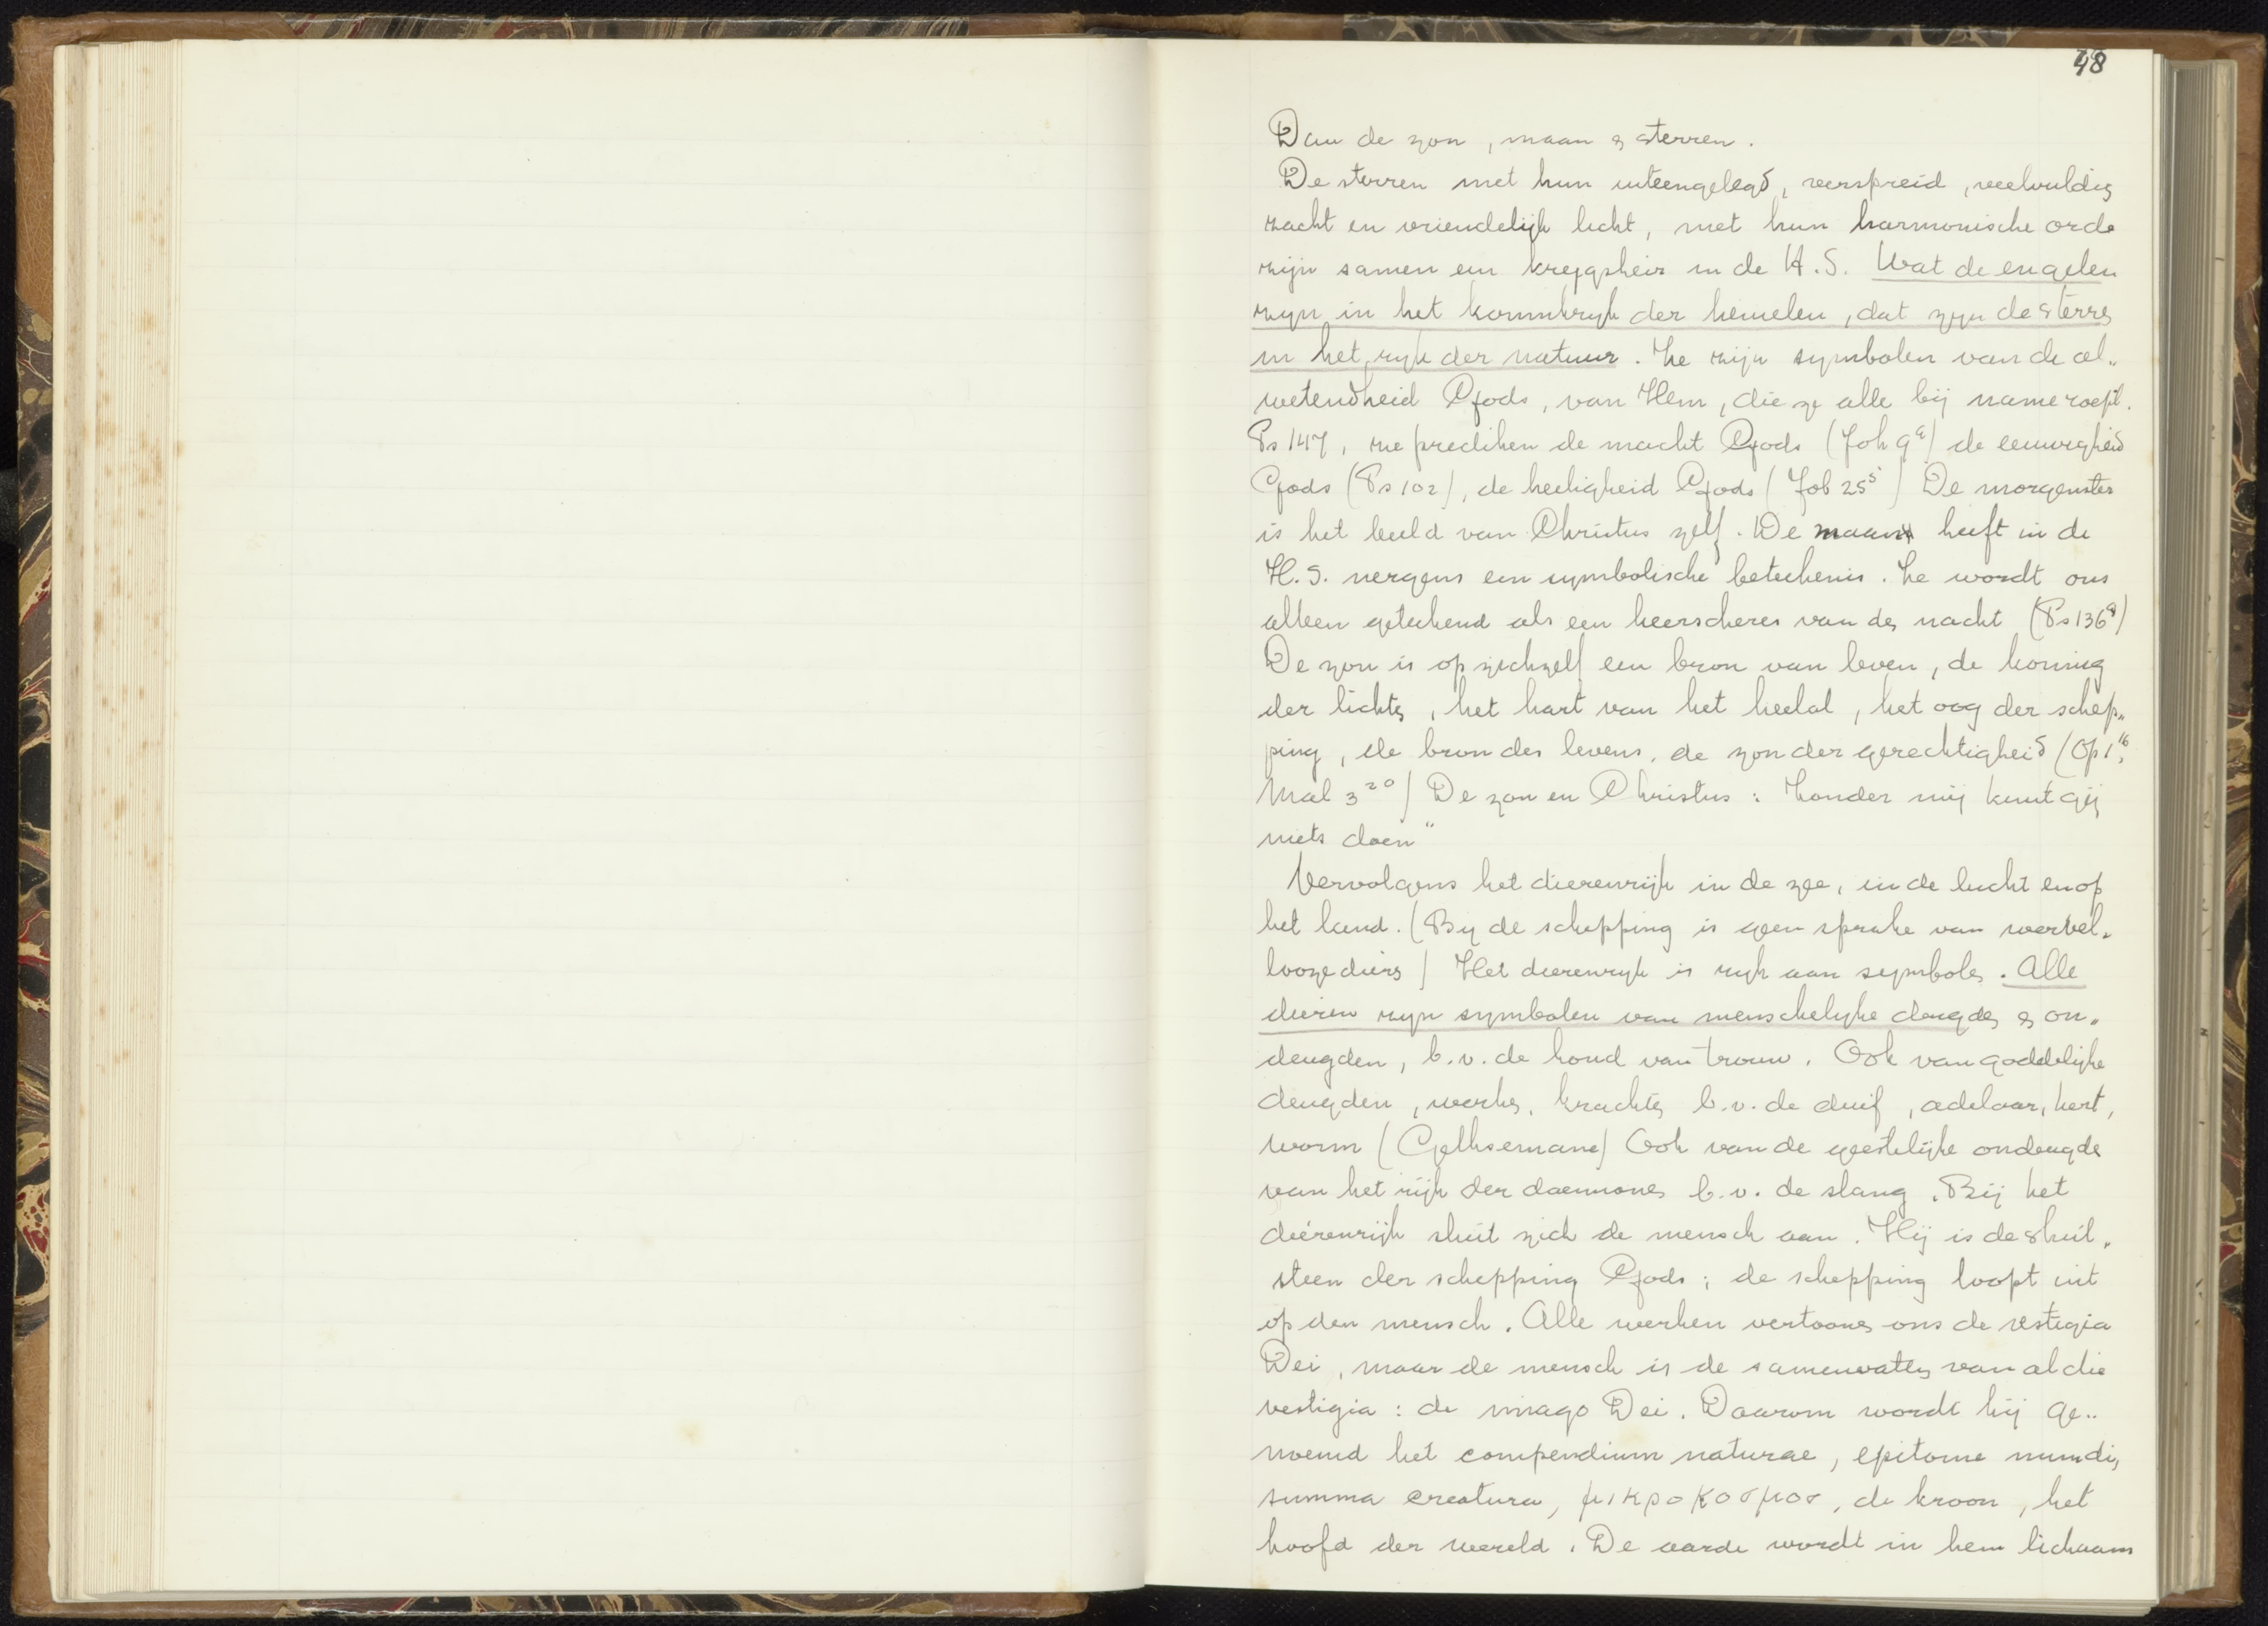 48
Dan de zon, maan & sterren.
De sterren met hun uiteengelegd, verspreid, veelvuldig
zacht en vriendelijk licht, met hun harmonische orde
zijn samen een krijgsheir in de H.S. Wat de engelen
zijn in het koninkrijk der hemelen, dat zijn de sterren
in het rijk der natuur. Ze zijn symbolen van de al„
wetendheid Gods, van Hem, die ze alle bij name roept.
Ps 147, ze prediken de macht Gods (Job 9⁹) de eeuwigheid
Gods (Ps 102), de heiligheid Gods (Job 25⁵) De morgenster
is het beeld van Christus zelf. De maan heeft in de
H.S. nergens een symbolische beteekenis. Ze wordt ons
alleen geteekend als een heerscheres van den nacht (Ps 136⁹)
De zon is op zichzelf een bron van leven, de koning
der lichten, het hart van het heelal, het oog der schep„
ping, de bron des levens, de zon der gerechtigheid (Op 1¹⁶,
Mal 3²⁰) De zon en Christus: Zonder mij kunt gij
niets doen"
Vervolgens het dierenrijk in de zee, in de lucht en op
het land. (Bij de schepping is geen sprake van wervel„
looze dieren) Het dierenrijk is rijk aan symbolen. Alle
dieren zijn symbolen van menschelijke deugden & on„
deugden, b.v. de hond van trouw. Ook van goddelijke
deugden, werken, krachten b.v. de duif, adelaar, hert,
worm (Gethsemane) Ook van de geestelijke ondeugden
van het rijk der daemonen b.v. de slang. Bij het
dierenrijk sluit zich de mensch aan. Hij is de sluit„
steen der schepping Gods; de schepping loopt uit
op den mensch. Alle werken vertoonen ons de vestigia
Dei, maar de mensch is de samenvatting van al die
vestigia: de imago Dei. Daarom wordt hij ge„
noemd het compendium naturae, epitome mundi,
summa creatura, μικροκοσμοσ, de kroon, het
hoofd der wereld. De aarde wordt in hem lichaam